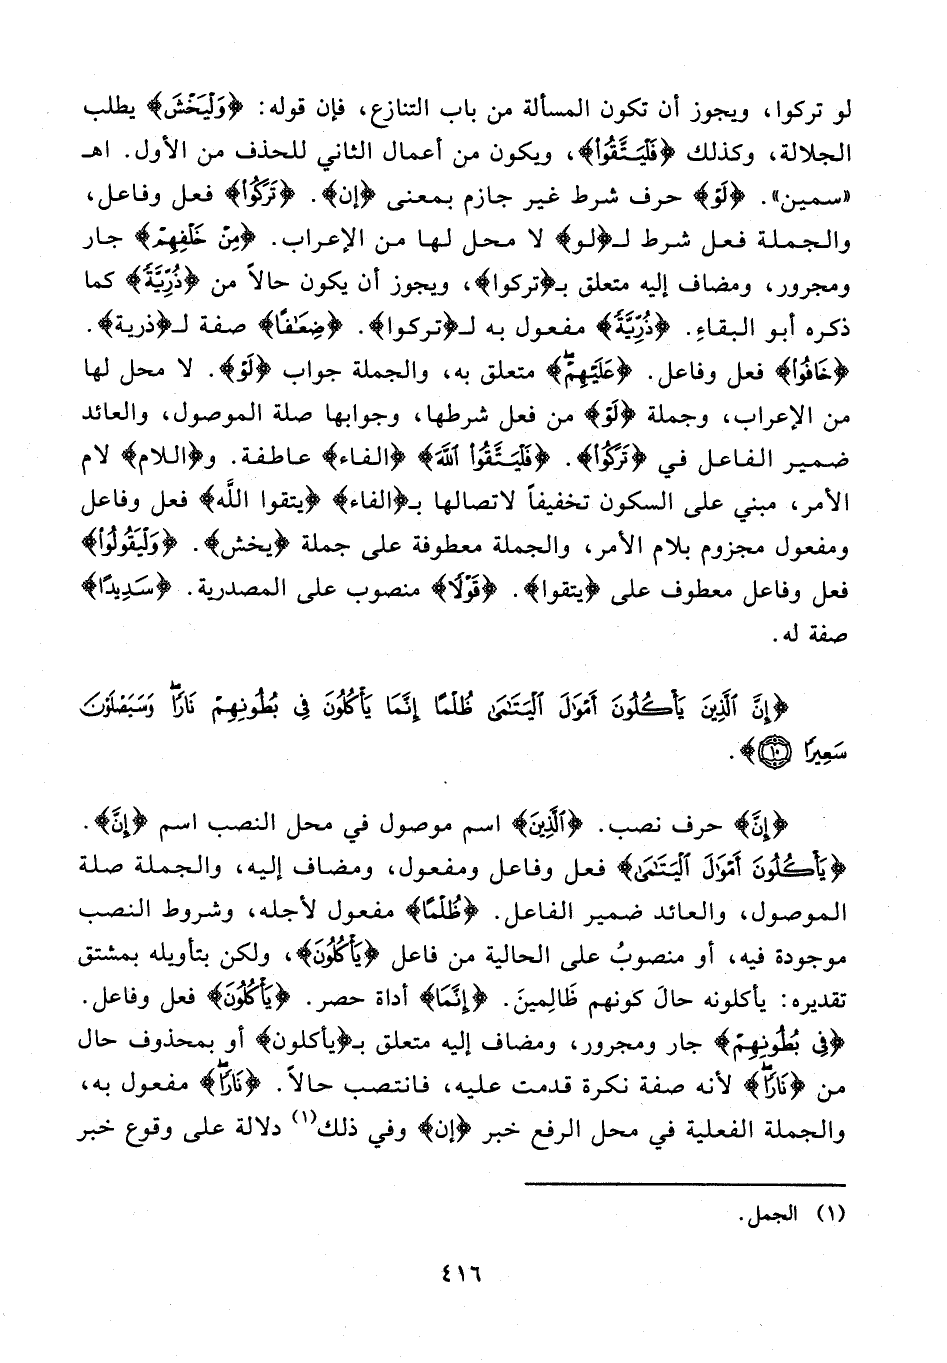 لو تركوا، ويجوز أن تكون المسألة من باب التنازع، فإن قوله: ﴿وَلْيَخْشَ﴾ يطلب
الجلالة، وكذلك ﴿فَلْيَتَّقُوا۟﴾، ويكون من أعمال الثاني للحذف من الأول. اهـ
«سمين». ﴿لَوْ﴾ حرف شرط غير جازم بمعنى ﴿إن﴾. ﴿تَرَكُوا۟﴾ فعل وفاعل،
والجملة فعل شرط لـ﴿لو﴾ لا محل لها من الإعراب. ﴿مِنْ خَلْفِهِمْ﴾ جار
ومجرور، ومضاف إليه متعلق بـ﴿تركوا﴾، ويجوز أن يكون حالاً من ﴿ذُرِّيَّةً﴾ كما
ذكره أبو البقاءِ. ﴿ذُرِّيَّةً﴾ مفعول به لـ﴿تركوا﴾. ﴿ضِعَـٰفًا﴾ صفة لـ﴿ذرية﴾.
﴿خَافُوا۟﴾ فعل وفاعل. ﴿عَلَيْهِمْۖ﴾ متعلق به، والجملة جواب ﴿لَوْ﴾. لا محل لها
من الإعراب، وجملة ﴿لَوْ﴾ من فعل شرطها، وجوابها صلة الموصول، والعائد
ضمير الفاعل في ﴿تَرَكُوا۟﴾. ﴿فَلْيَتَّقُوا۟ ٱللَّهَ﴾ ﴿الفاء﴾ عاطفة. و﴿اللام﴾ لام
الأمر، مبني على السكون تخفيفاً لاتصالها بـ﴿الفاء﴾ ﴿يتقوا اللَّه﴾ فعل وفاعل
ومفعول مجزوم بلام الأمر، والجملة معطوفة على جملة ﴿يخش﴾. ﴿وَلْيَقُولُوا۟﴾
فعل وفاعل معطوف على ﴿يتقوا﴾. ﴿قَوْلًا﴾ منصوب على المصدرية. ﴿سَدِيدًا﴾
صفة له.
﴿إِنَّ ٱلَّذِينَ يَأْكُلُونَ أَمْوَٰلَ ٱلْيَتَـٰمَىٰ ظُلْمًا إِنَّمَا يَأْكُلُونَ فِى بُطُونِهِمْ نَارًاۖ وَسَيَصْلَوْنَ
سَعِيرًا ١٠﴾.
﴿إِنَّ﴾ حرف نصب. ﴿ٱلَّذِينَ﴾ اسم موصول في محل النصب اسم ﴿إِنَّ﴾.
﴿يَأْكُلُونَ أَمْوَٰلَ ٱلْيَتَـٰمَىٰ﴾ فعل وفاعل ومفعول، ومضاف إليه، والجملة صلة
الموصول، والعائد ضمير الفاعل. ﴿ظُلْمًا﴾ مفعول لأجله، وشروط النصب
موجودة فيه، أو منصوبُ على الحالية من فاعل ﴿يَأْكُلُونَ﴾، ولكن بتأويله بمشتق
تقديره: يأكلونه حالَ كونهم ظَالِمينَ. ﴿إِنَّمَا﴾ أداة حصر. ﴿يَأْكُلُونَ﴾ فعل وفاعل.
﴿فِى بُطُونِهِمْ﴾ جار ومجرور، ومضاف إليه متعلق بـ﴿يأكلون﴾ أو بمحذوف حال
من ﴿نَارًاۖ﴾ لأنه صفة نكرة قدمت عليه، فانتصب حالاً. ﴿نَارًاۖ﴾ مفعول به،
والجملة الفعلية في محل الرفع خبر ﴿إن﴾ وفي ذلك(١) دلالة على وقوع خبر
(١) الجمل.
٤١٦